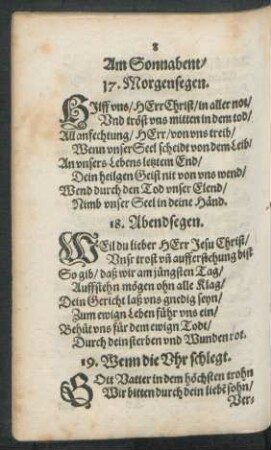 8
Am Sonnabent/
17. Morgensegen.
HIlff vns/ HErr Christ/ in aller not/
Vnd tröst vns mitten in dem tod/
All anfechtung/ HErr/ von vns treib/
Wenn vnser Seel scheidt von dem Leib/
An vnsers Lebens letztem End/
Dein heilgen Geist nit von vns wend/
Wend durch den Tod vnser Elend/
Nimb vnser Seel in deine Händ.
18. Abendsegen.
WEil du lieber HErr Jesu Christ/
Vnsr trost vñ aufferstehung bist
So gib/ daß wir am jüngsten Tag/
Auffstehn mögen ohn alle Klag/
Dein Gericht laß vns gnedig seyn/
Zum ewign Leben führ vns ein/
Behüt vns für dem ewign Todt/
Durch dein sterben vnd Wunden rot.
19. Wenn die Vhr schlegt.
GOtt Vatter in dem höchsten trohn
Wir bitten durch dein liebē sohn/
Ver-